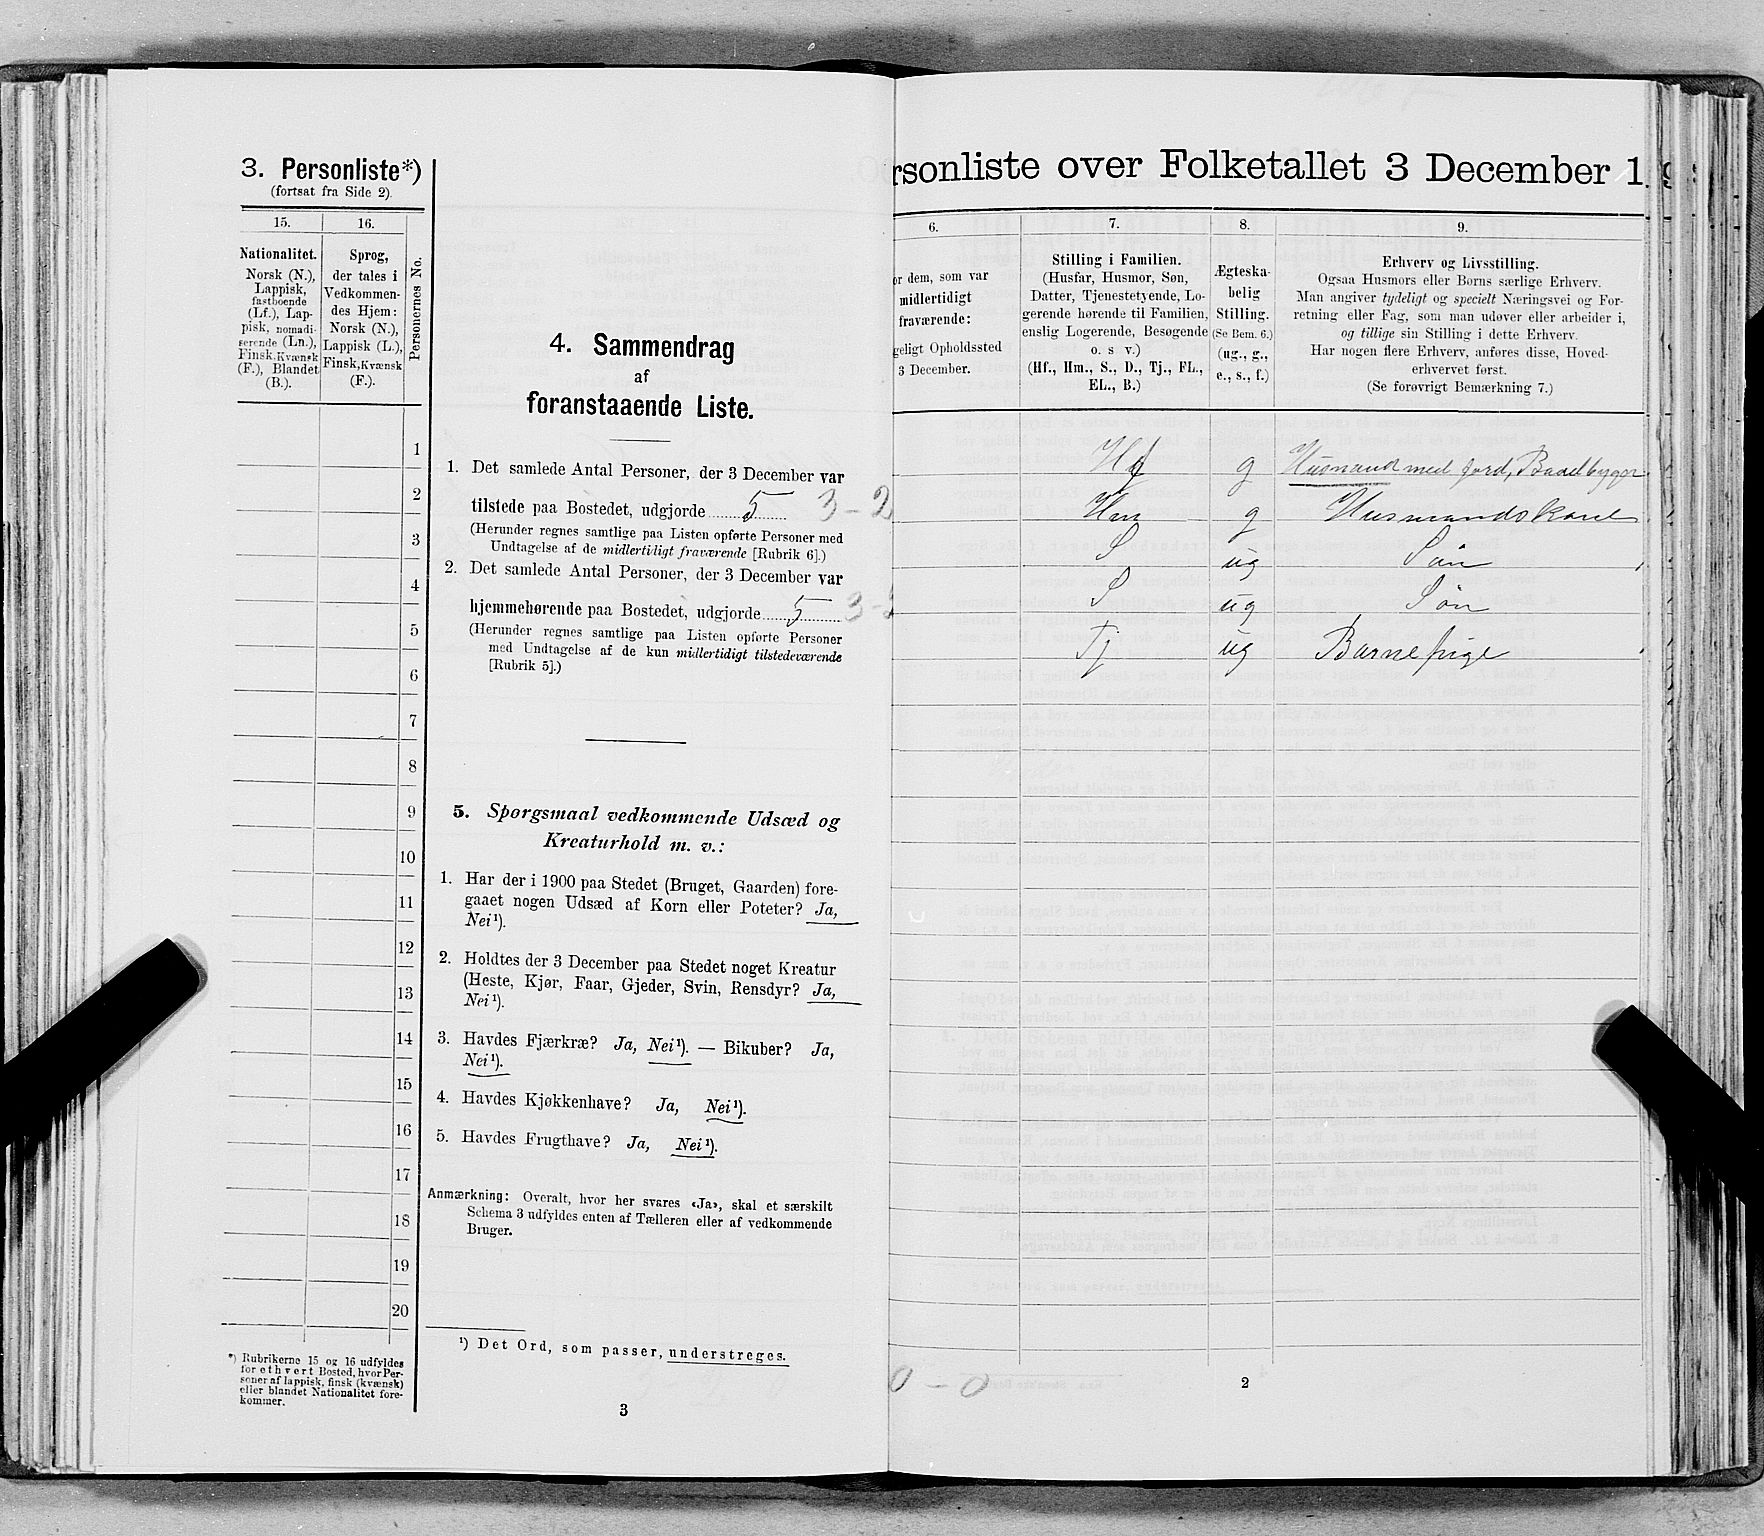 3. Personliste*)
(fortsat fra Side 2).
15.
16.
Personernes No.
Nationalitet.
Norsk (N.),
Lappisk,
fastboende
(Lf.), Lap-
pisk, nomadi-
serende (Ln.),
Finsk, Kvænsk
(F.), Blandet
(B.).
Sprog,
der tales i
Vedkommen-
des Hjem:
Norsk (N.),
Lappisk (L.),
Finsk, Kvænsk
(F.).
1
2
3
4
5
6
7
8
9
10
11
12
13
14
15
16
17
18
19
20
*) Rubrikerne 15 og 16 udfyldes
for ethvert Bosted, hvor Per-
soner af lappisk, finsk (kvænsk)
eller blandet Nationalitet fore-
kommer.
4. Sammendrag
af
foranstaaende Liste.
1. Det samlede Antal Personer, der 3 December var
tilstede paa Bostedet, udgjorde 5 3-2
(Herunder regnes samtlige paa Listen opførte Personer med
Undtagelse af de midlertidigt fraværende [Rubrik 6].)
2. Det samlede Antal Personer, der 3 December var
hjemmehørende paa Bostedet, udgjorde 5 3-
(Herunder regnes samtlige paa Listen opførte Personer
med Undtagelse af de kun midlertidigt tilstedeværende
[Rubrik 5].)
5. Spørgsmaal vedkommende Udsæd og
Kreaturhold m. v.:
1. Har der i 1900 paa Stedet (Bruget, Gaarden) fore-
gaaet nogen Udsæd af Korn eller Poteter? Ja,
Nei¹).
2. Holdtes der 3 December paa Stedet noget Kreatur
(Heste, Kjør, Faar, Gjeder, Svin, Rensdyr? Ja,
Nei¹).
3. Havdes Fjærkræ? Ja, Nei¹). — Bikuber? Ja,
Nei¹).
4. Havdes Kjøkkenhave? Ja, Nei¹).
5. Havdes Frugthave? Ja, Nei¹).
Anmærkning: Overalt, hvor her svares «Ja», skal et særskilt
Schema 3 udfyldes enten af Tælleren eller af vedkommende
Bruger.
¹) Det Ord, som passer, understreges.
3
rsonliste over Folketallet 3 December 1
6.
7.
8.
9.
or dem, som var
midlertidigt
fraværende:
geligt Opholdssted
3 December.
Stilling i Familien.
(Husfar, Husmor, Søn,
Datter, Tjenestetyende, Lo-
gerende hørende til Familien,
enslig Logerende, Besøgende
o. s v.)
(Hf., Hm., S., D., Tj., FL.,
EL., B.)
Ægteska-
belig
Stilling.
(Se Bem. 6.)
(ug., g.,
e., s., f.)
Erhverv og Livsstilling.
Ogsaa Husmors eller Børns særlige Erhverv.
Man angiver tydeligt og specielt Næringsvei og For-
retning eller Fag, som man udøver eller arbeider i,
og tillige sin Stilling i dette Erhverv.
Har nogen flere Erhverv, anføres disse, Hoved-
erhvervet først.
(Se forøvrigt Bemærkning 7.)
Hf g Husmand med jord, Baadbygger
Hm g Husmandskone
S ug Søn
S ug Søn
Tj ug Barnepige
0-0
2